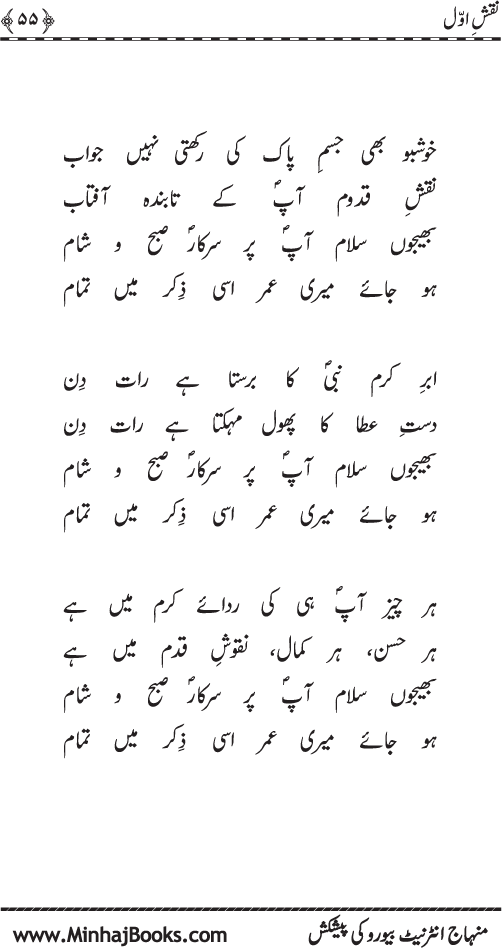 نقشِ اوّل
﴿۵۵﴾
خوشبو بھی جسمِ پاک کی رکھتی نہیں جواب
نقشِ قدوم آپؐ کے تابندہ آفتاب
بھیجوں سلام آپؐ پر سرکارؐ صبح و شام
ہو جائے میری عمر اسی ذِکر میں تمام
ابرِ کرم نبیؐ کا برستا ہے رات دِن
دستِ عطا کا پھول مہکتا ہے رات دِن
بھیجوں سلام آپؐ پر سرکارؐ صبح و شام
ہو جائے میری عمر اسی ذِکر میں تمام
ہر چیز آپؐ ہی کی ردائے کرم میں ہے
ہر حسن، ہر کمال، نقوشِ قدم میں ہے
بھیجوں سلام آپؐ پر سرکارؐ صبح و شام
ہو جائے میری عمر اسی ذِکر میں تمام
منہاج انٹرنیٹ بیورو کی پیشکش
www.MinhajBooks.com